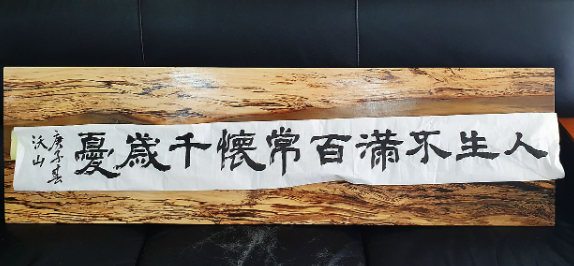 人生不满百常懷千歲憂
庚子春
沃山